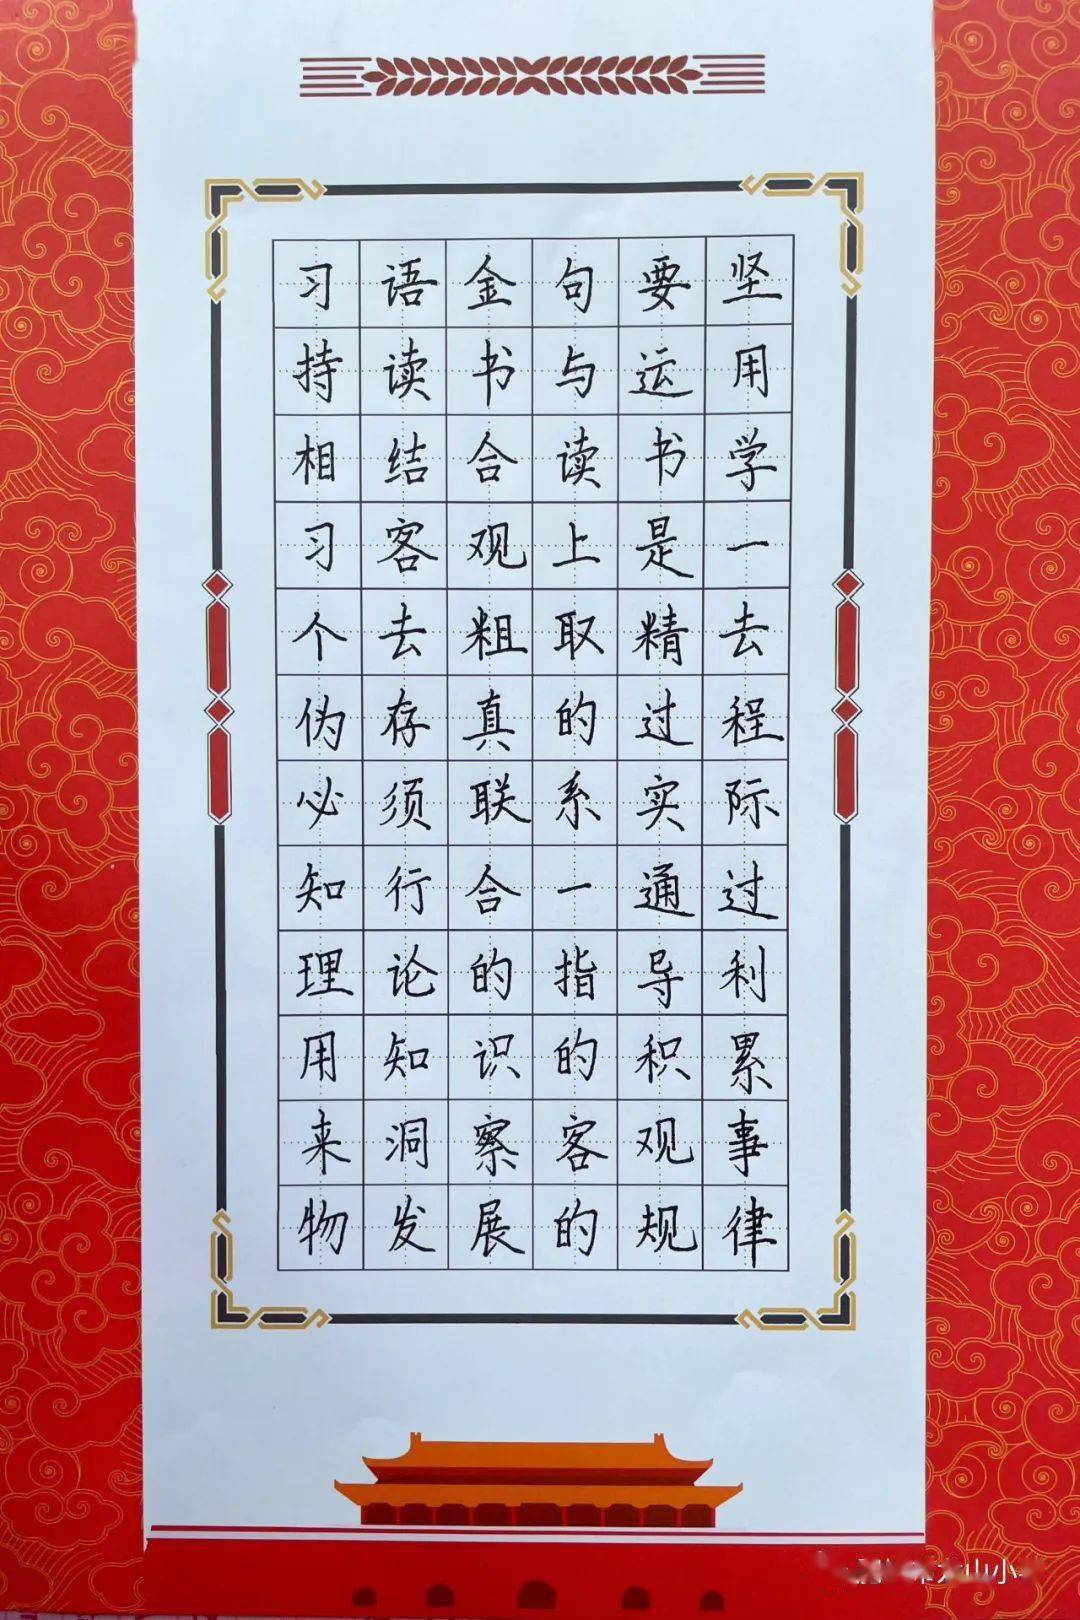 习语金句要坚
持读书与运用
相结合读书学
习客观上是一
个去粗取精去
伪存真的过程
必须联系实际
知行合一通过
理论的指导利
用知识的积累
来洞察客观事
物发展的规律